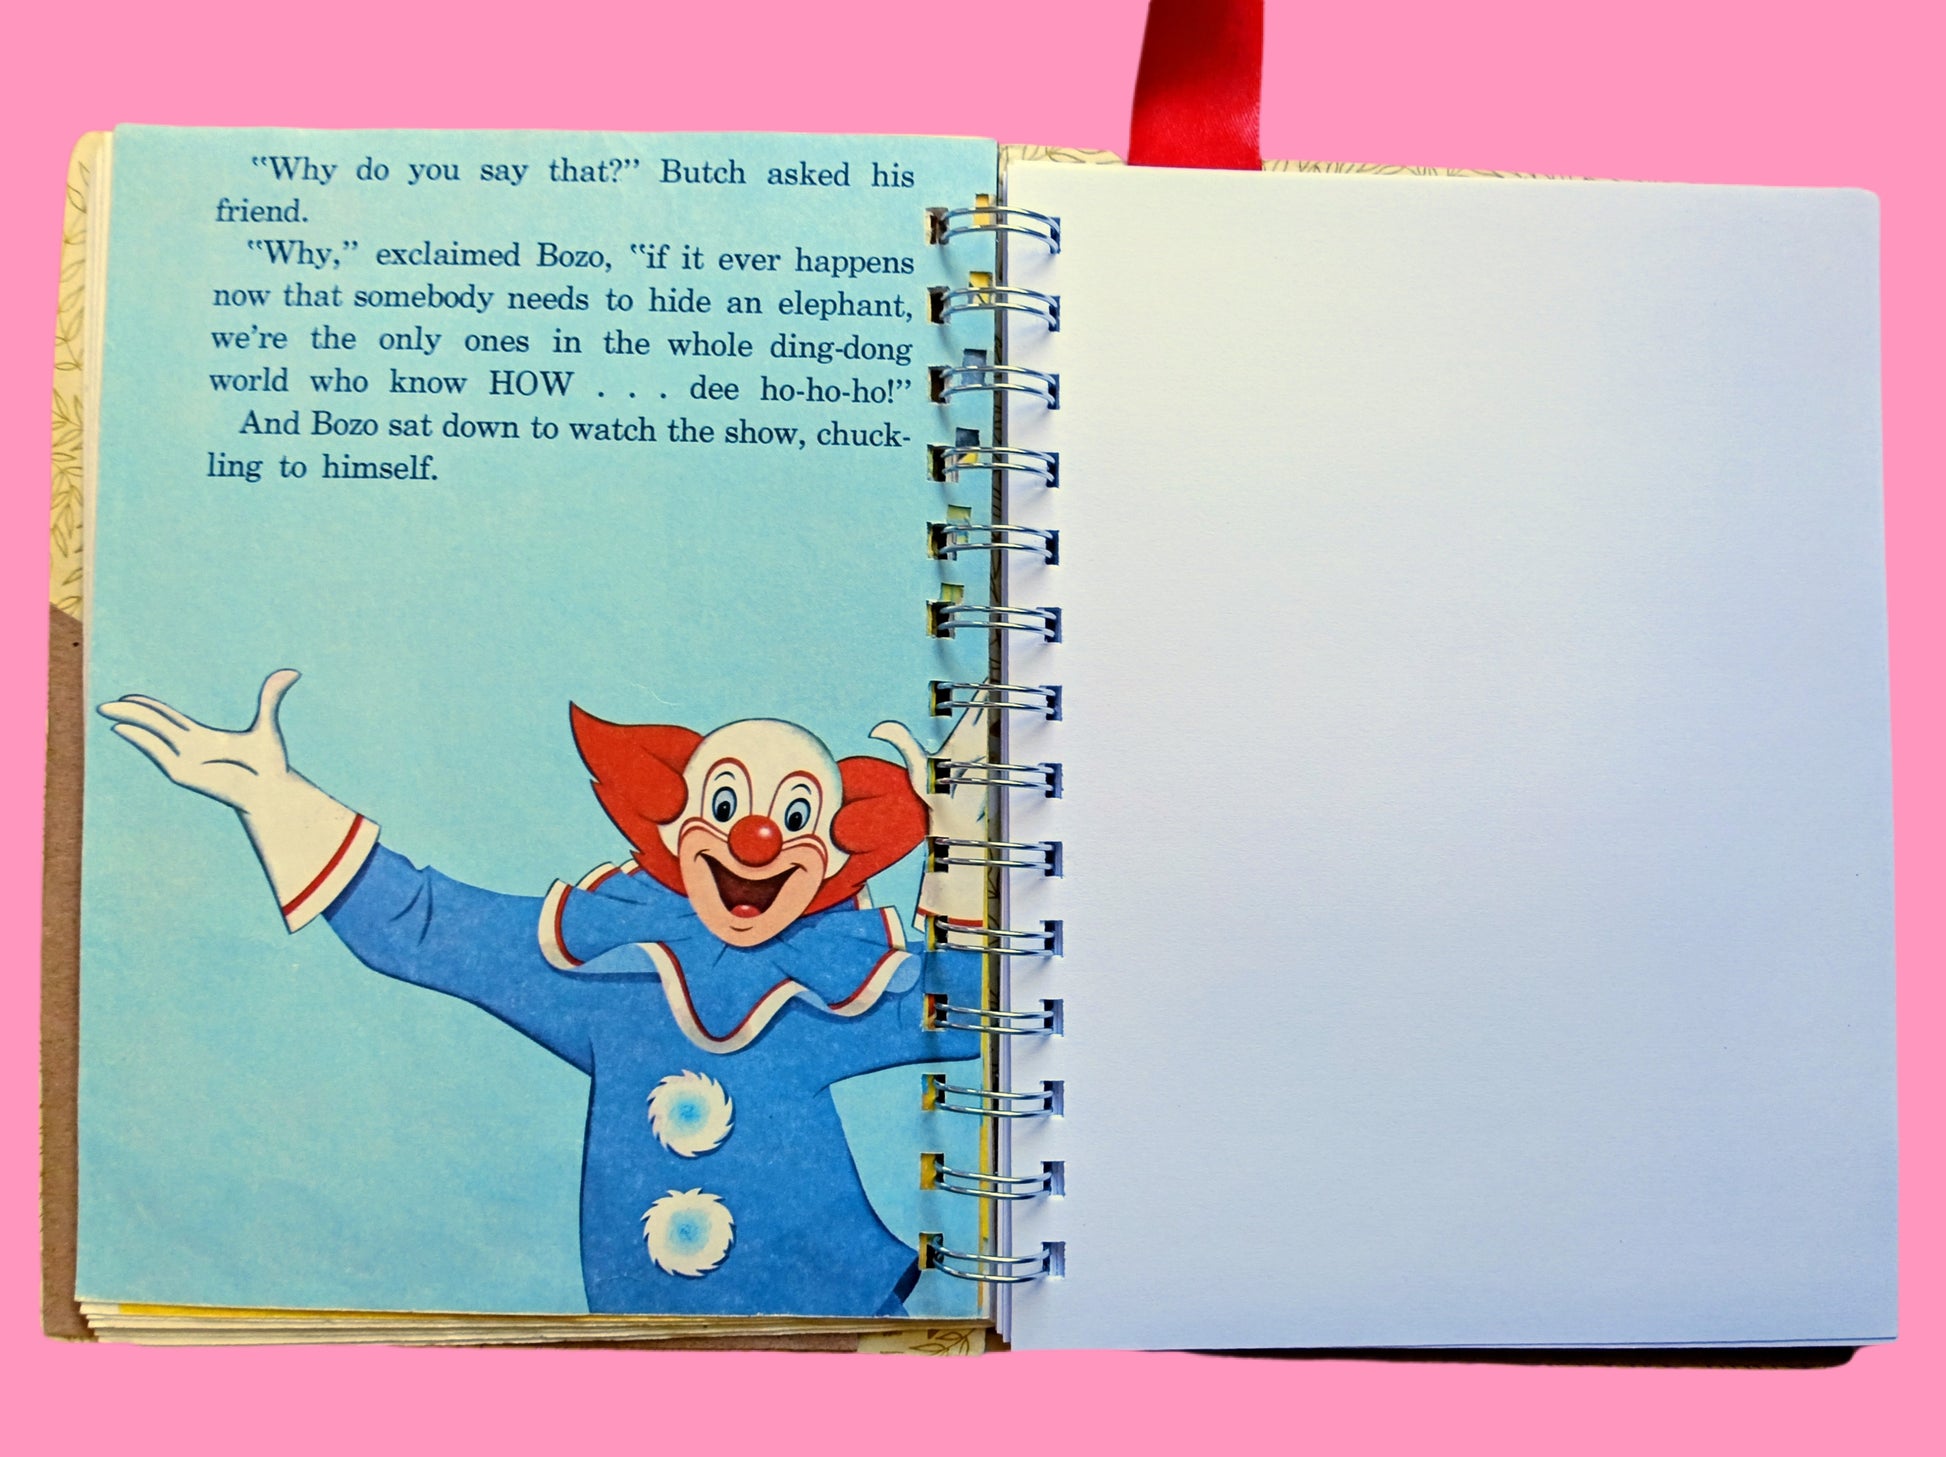 “Why do you say that?” Butch asked his
friend.
“Why,” exclaimed Bozo, “if it ever happens
now that somebody needs to hide an elephant,
we’re the only ones in the whole ding-dong
world who know HOW . . . dee ho-ho-ho!”
And Bozo sat down to watch the show, chuck-
ling to himself.